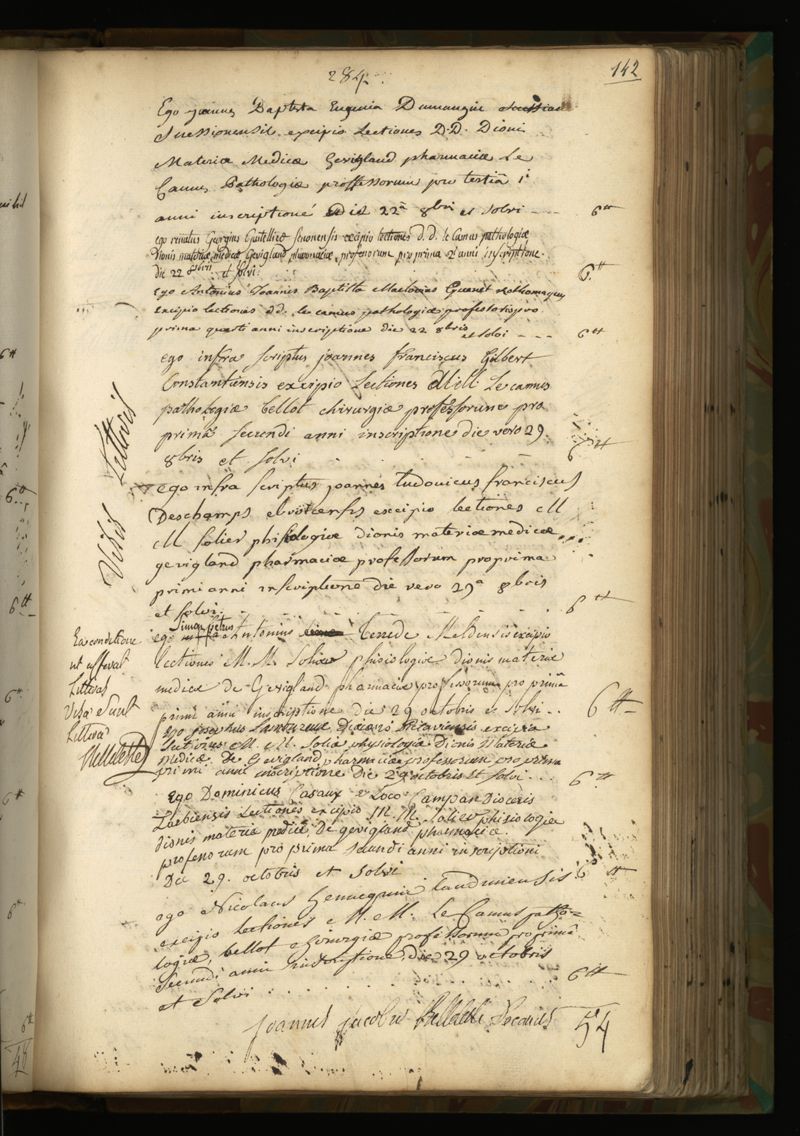 284.
142
Ego joannes Baptista Eugenius Dumangin
Suessionensis excipio Lectiones D.D. Dionis
Materiæ Medicæ Gevigland pharmaciæ Le
Camus Pathologiæ professorum pro tertiâ
anni inscriptione die 22â 8bris et solvi - - - 6tt
ego renatus Georgius Senonensis excipio lectiones d.d. le Camus pathologiæ
Dionis materiæ medicæ Gevigland pharmaciæ professorum pro prima 2i anni inscriptione
die 22 8bris et solvi. 6tt
ego Antonius Joannes Baptista Maclovius Rothomagensis
excipio lectiones dd. le camus pathologiæ professoris pro
prima quarti anni inscriptione die 22 8bris et solvi - - - 6tt
ego infra scriptus joannes franciscus Gilbert
Constantiensis excipio Lectiones Le camus
pathologiæ bellot chirurgiæ professorum pro
prima secundi anni inscriptione die vero 29
8bris et solvi 6tt
Visis Litteris
ego infra scriptus joannes Ludovicus franciscus
Deschamps ebroicensis excipio lectiones M
M solier phisiologiæ dionis materiæ medicæ
gevigland pharmaciæ professorum pro prima
primi anni inscriptione die vero 29â 8bris
et solvi. 6tt
Simon petrus
ego Antonius Meldensis excipio
Lectiones M.M. Solier phisiologiæ dionis materiæ
medicæ de Gevigland pharmaciæ professorum pro primâ
primi anni inscriptione die 29 octobris et solvi.. 6tt
Ea conditione
ut afferat
Litteras
Visæ sunt
Litteræ
Bellelete
ego Pictaviensis excipio
Lectiones M. M. Solié physiologiæ Dionis Materiæ
medicæ De Gevigland pharmaciæ professorum pro prima
primi anni inscriptione die 29 octobris et solvi... 6tt
Ego Dominicus Casaux e Loco Campan Diocesis
Lectiones excipio M.M. Solier phisiologiæ
dionis materiæ medicæ De gevigland pharmaciæ
professorum pro prima secundi anni inscriptioni
Die 29. octobris et Solvi 6tt
ego Nicolaus hennequin Laudunensis
excipio lectiones M. M. Le Camus patho=
logiæ, bellot chirurgiæ professorum pro primâ
secundi anni inscriptione die 29 octobris
et solvi 6tt
Joannes Jacobus Bellelete Decanus 54